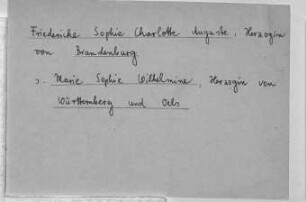 Friederike Sophie Charlotte Auguste, Herzogin
von Brandenburg
s. Marie Sophie Wilhelmine, Herzogin von
Württemberg und Oels